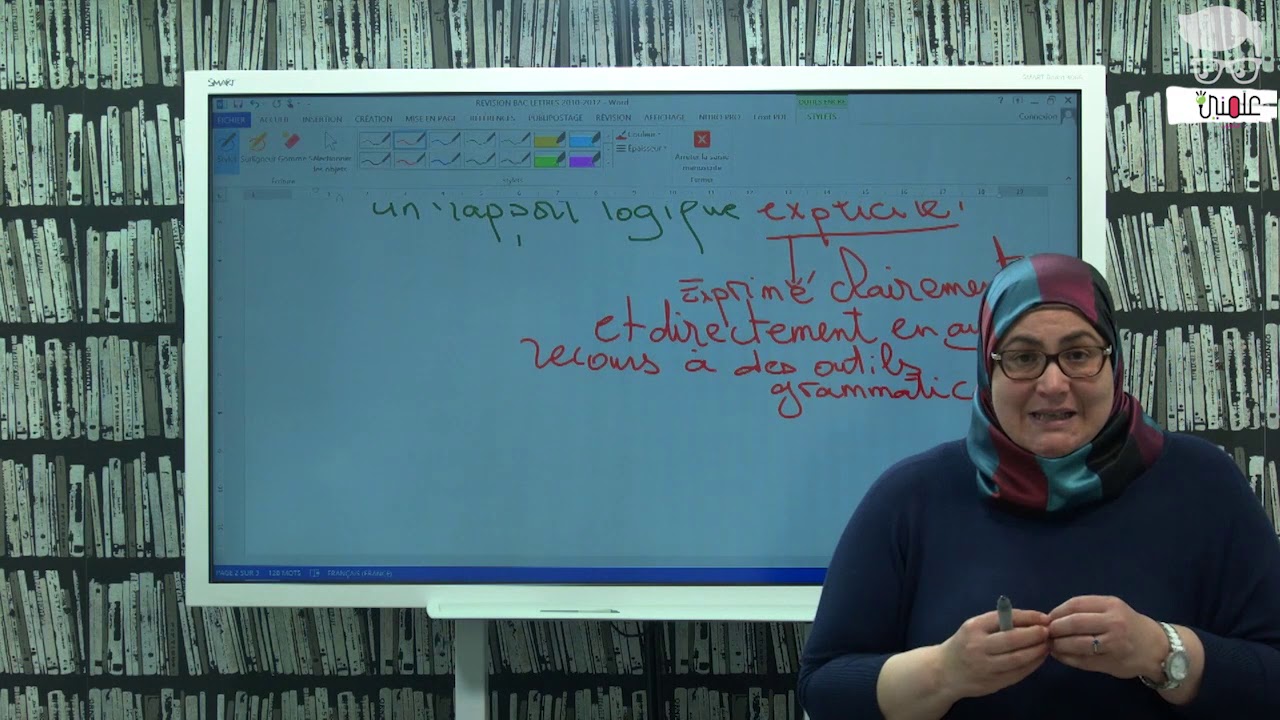 SMART
علمني
REVISION BAC LETTRES 2016-2017 - Word
OUTILS ENCRE
FICHIER ACCUEIL INSERTION CRÉATION MISE EN PAGE RÉFÉRENCES PUBLIPOSTAGE RÉVISION AFFICHAGE STYLETS Connexion
Couleur
Épaisseur
Sélectionner les objets
Arrêter la saisie manuscrite
Stylets
Fermer
un rapport logique explicite
Exprimé clairement
et directement en
recours à des outils
grammatic
PAGE 2 SUR 3 128 MOTS FRANÇAIS (FRANCE)